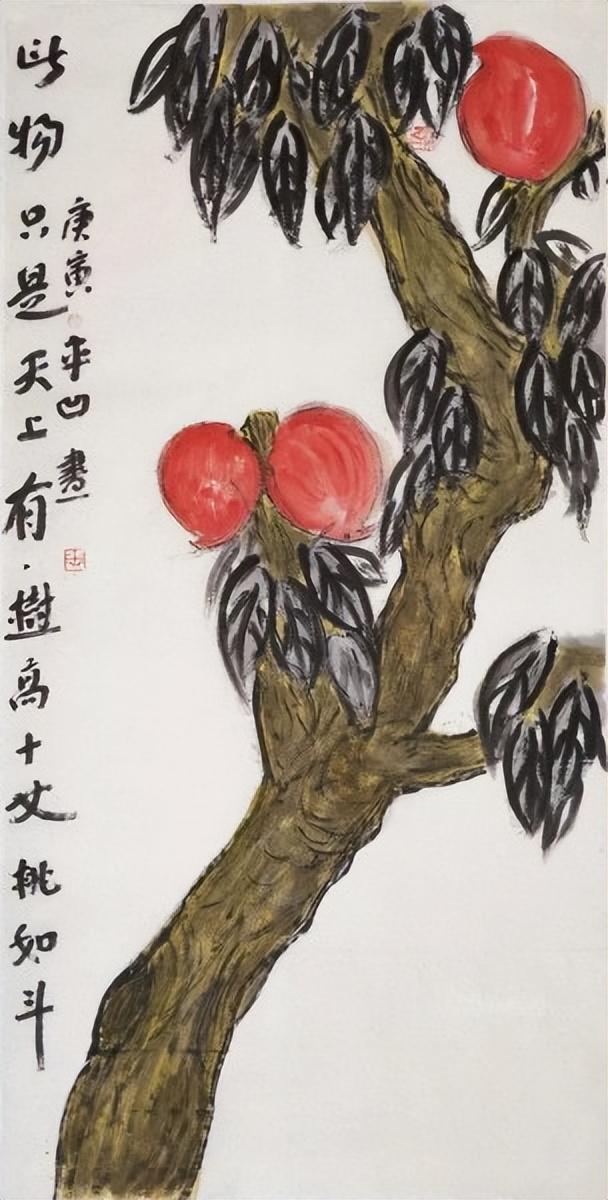 此物只是天上有．樹高十丈桃如斗
庚寅平凹畫